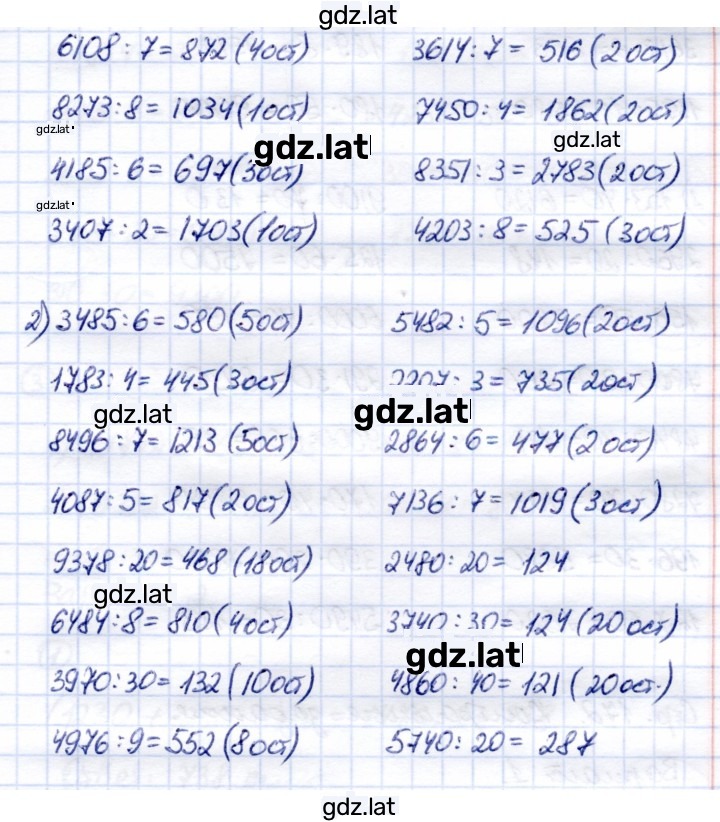 gdz.lat
6108 : 7 = 872 (4ост) 3614 : 7 = 516 (2ост)
8273 : 8 = 1034 (1ост) 7450 : 4 = 1862 (2ост)
gdz.lat gdz.lat gdz.lat
4185 : 6 = 697 (3ост) 8351 : 3 = 2783 (2ост)
gdz.lat
3407 : 2 = 1703 (1ост) 4203 : 8 = 525 (3ост)
2) 3485 : 6 = 580 (5ост) 5482 : 5 = 1096 (2ост)
1783 : 4 = 445 (3ост) : 3 = 735 (2ост)
gdz.lat gdz.lat
8496 : 7 = 1213 (5ост) 2864 : 6 = 477 (2ост)
4087 : 5 = 817 (2ост) 7136 : 7 = 1019 (3ост)
9378 : 20 = 468 (18ост) 2480 : 20 = 124
gdz.lat
6484 : 8 = 810 (4ост) 3740 : 30 = 124 (20ост)
gdz.lat
3970 : 30 = 132 (10ост) 4860 : 40 = 121 (20ост.)
4976 : 9 = 552 (8ост) 5740 : 20 = 287
gdz.lat